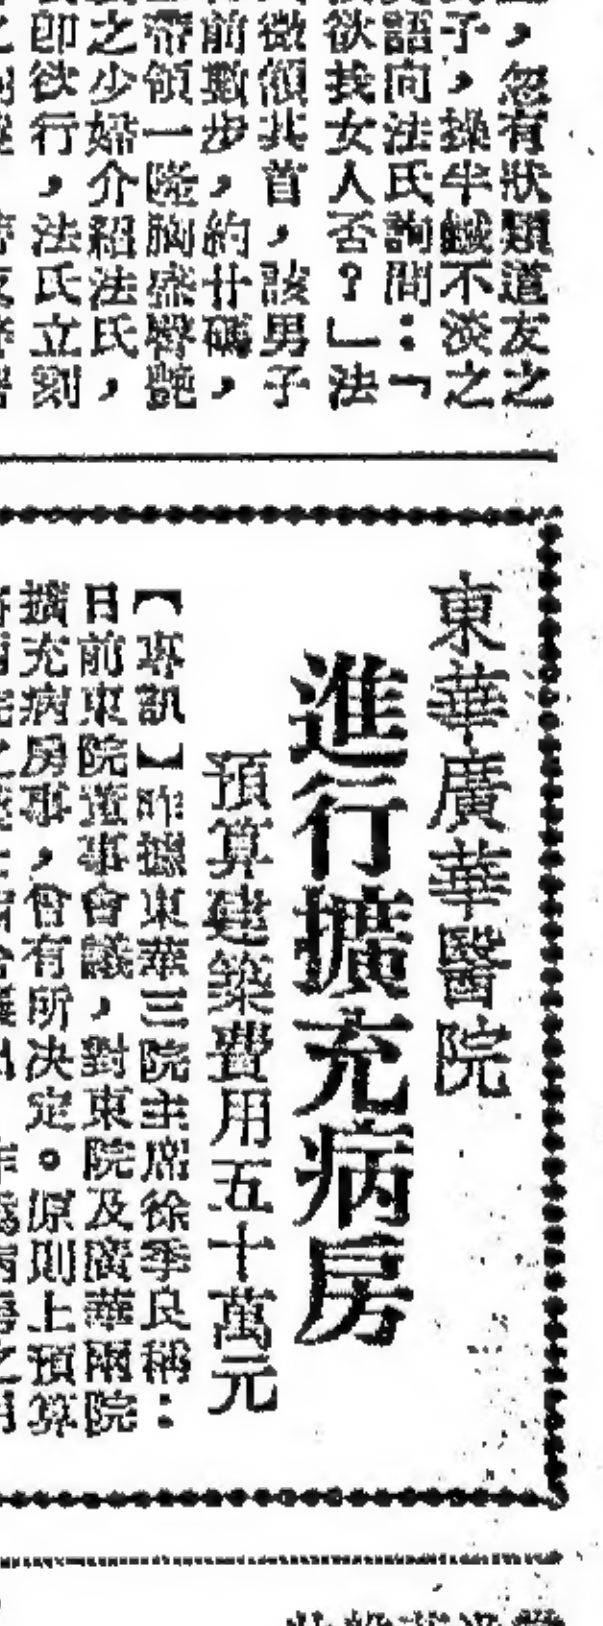 ，忽有狀類道友之
子，操半鹹不淡之
語向法氏詢問：「
欲我女人否？」法
微頷其首，該男子
前數步，約廿碼，
帶領一隆胸盛臀艷
之少婦介紹法氏，
即欲行，法氏立刻
東華廣華醫院
進行擴充病房
預算建築費用五十萬元
【專訊】昨據東華三院主席徐季良稱：
日前東院董事會議，對東院及廣華兩院
擴充病房事，曾有所決定。原則上預算